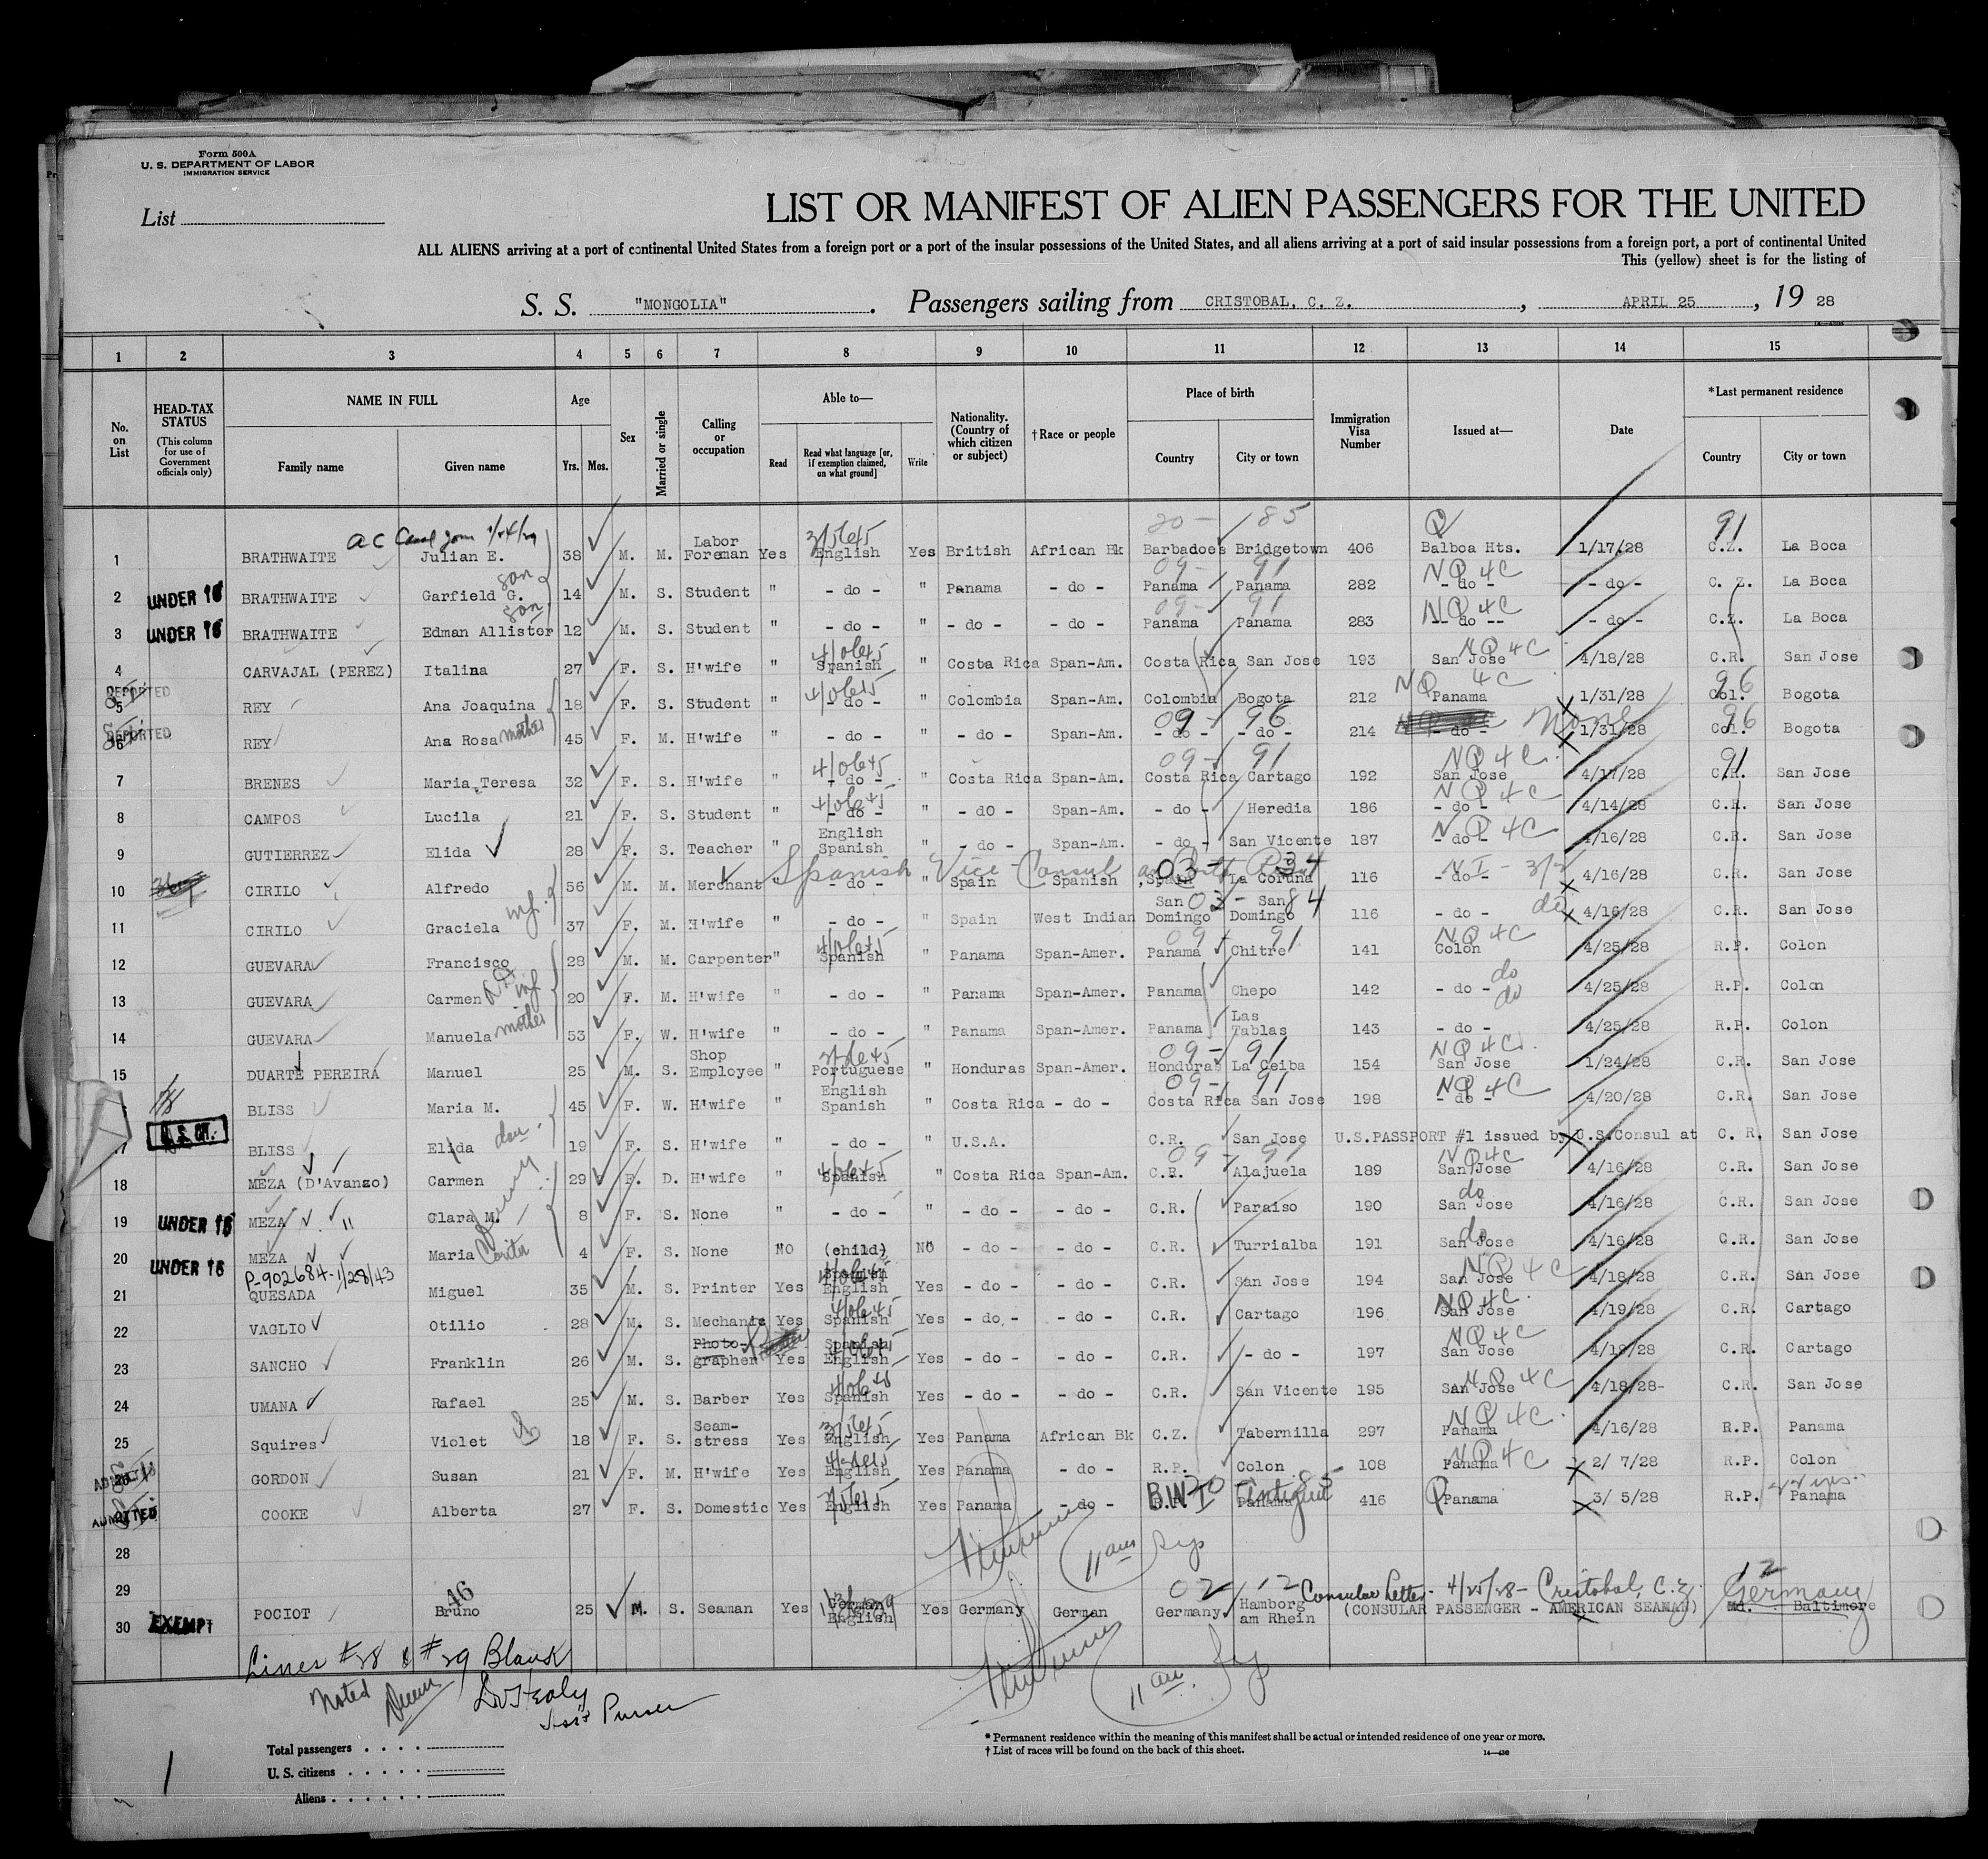 Form 500A
U. S. DEPARTMENT OF LABOR
IMMIGRATION SERVICE
List
LIST OR MANIFEST OF ALIEN PASSENGERS FOR THE UNITED
ALL ALIENS arriving at a port of continental United States from a foreign port or a port of the insular possessions of the United States, and all aliens arriving at a port of said insular possessions from a foreign port, a port of continental United
This (yellow) sheet is for the listing of
S. S. "MONGOLIA". Passengers sailing from CRISTOBAL, C. Z., APRIL 25, 19 28
1 2 3 4 5 6 7 8 9 10 11 12 13 14 15
No. on List
HEAD-TAX STATUS (This column for use of Government officials only)
NAME IN FULL
Family name Given name
Age
Yrs. Mos.
Sex
Married or single
Calling or occupation
Able to—
Read Read what language [or, if exemption claimed, on what ground] Write
Nationality. (Country of which citizen or subject)
†Race or people
Place of birth
Country City or town
Immigration Visa Number
Issued at—
Date
*Last permanent residence
Country City or town
1 BRATHWAITE Julian E. 38 M. M. Labor Foreman Yes English Yes British African Bk Barbadoes Bridgetown 406 Balboa Hts. 1/17/28 C.Z. La Boca
2 UNDER 16 BRATHWAITE Garfield G. son 14 M. S. Student " - do - " Panama - do - Panama Panama 282 NQ 4C - do - - do - C. Z. La Boca
3 UNDER 16 BRATHWAITE Edman Allister son 12 M. S. Student " - do - " - do - - do - Panama Panama 283 NQ 4C - do -- - do - C.Z. La Boca
4 CARVAJAL (PEREZ) Italina 27 F. S. H'wife " Spanish " Costa Rica Span-Am. Costa Rica San Jose 193 San Jose NQ 4C 4/18/28 C.R. San Jose
5 DEPORTED REY Ana Joaquina 18 F. S. Student " - do - " Colombia Span-Am. Colombia Bogota 212 NQ 4C Panama 1/31/28 Col. Bogota
6 DEPORTED REY Ana Rosa mother 45 F. M. H'wife " - do - " - do - Span-Am. - do - - do - 214 - do - None 1/31/28 Col. Bogota
7 BRENES Maria Teresa 32 F. S. H'wife " - do - " Costa Rica Span-Am. Costa Rica Cartago 192 NQ 4C San Jose 4/17/28 C.R. San Jose
8 CAMPOS Lucila 21 F. S. Student " - do - " - do - Span-Am. - do - Heredia 186 NQ 4C - do - 4/14/28 C.R. San Jose
9 GUTIERREZ Elida 28 F. S. Teacher " English Spanish " - do - Span-Am. - do - San Vicente 187 NQ 4C - do - 4/16/28 C.R. San Jose
Spanish Vice Consul
10 CIRILO Alfredo 56 M. M. Merchant " - do - " Spain Spanish Spain La Coruna 116 - do - 4/16/28 C.R. San Jose
11 CIRILO Graciela wf. 37 F. M. H'wife " - do - " Spain West Indian San Domingo San Domingo 116 - do - do 4/16/28 C.R. San Jose
12 GUEVARA Francisco 28 M. M. Carpenter " Spanish " Panama Span-Amer. Panama Chitre 141 NQ 4C Colon 4/25/28 R.P. Colon
13 GUEVARA Carmen wf 20 F. M. H'wife " - do - " Panama Span-Amer. Panama Chepo 142 - do - do 4/25/28 R.P. Colon
14 GUEVARA Manuela mother 53 F. W. H'wife " - do - " Panama Span-Amer. Panama Las Tablas 143 - do - do 4/25/28 R.P. Colon
15 DUARTE PEREIRA Manuel 25 M. S. Shop Employee " Portuguese " Honduras Span-Amer. Honduras La Ceiba 154 NQ 4C San Jose 1/24/28 C.R. San Jose
BLISS Maria M. 45 F. W. H'wife " English Spanish " Costa Rica - do - Costa Rica San Jose 198 NQ 4C - do - 4/20/28 C.R. San Jose
17 U.S. CIT. BLISS Elida dau 19 F. S. H'wife " - do - " U.S.A. C.R. San Jose U.S.PASSPORT #1 issued by U.S.Consul at C. R. San Jose
18 MEZA (D'Avanzo) Carmen 29 F. D. H'wife " Spanish " Costa Rica Span-Am. C.R. Alajuela 189 NQ 4C San Jose 4/16/28 C.R. San Jose
19 UNDER 16 MEZA Clara M. 8 F. S. None " - do - " - do - - do - C.R. Paraiso 190 do San Jose 4/16/28 C.R. San Jose
20 UNDER 16 MEZA Maria 4 F. S. None NO (child) NO - do - - do - C.R. Turrialba 191 do San Jose 4/16/28 C.R. San Jose
P-902684-1/28/43
21 QUESADA Miguel 35 M. S. Printer Yes English Yes - do - - do - C.R. San Jose 194 NQ 4C San Jose 4/18/28 C.R. San Jose
22 VAGLIO Otilio 28 M. S. Mechanic Yes Spanish Yes - do - - do - C.R. Cartago 196 NQ 4C San Jose 4/19/28 C.R. Cartago
23 SANCHO Franklin 26 M. S. Photo-grapher Yes Spanish English Yes - do - - do - C.R. - do - 197 NQ 4C San Jose 4/19/28 C.R. Cartago
24 UMANA Rafael 25 M. S. Barber Yes Spanish Yes - do - - do - C.R. San Vicente 195 NQ 4C San Jose 4/18/28- C.R. San Jose
25 Squires Violet 18 F. S. Seam-stress Yes English Yes Panama African Bk C.Z. Tabernilla 297 NQ 4C Panama 4/16/28 R.P. Panama
26 ADMITTED GORDON Susan 21 F. M. H'wife Yes English Yes Panama - do - R.P. Colon 108 NQ 4C Panama 2/ 7/28 R.P. Colon
27 ADMITTED COOKE Alberta 27 F. S. Domestic Yes English Yes Panama - do - B.W.I. Antigua Panama 416 Q Panama 3/ 5/28 R.P. Panama
28
29
30 EXEMPT POCIOT Bruno 46 25 M. S. Seaman Yes German English Yes Germany German Germany Hamborg am Rhein Consular Letter - 4/25/28 - Cristobal, C.Z. (CONSULAR PASSENGER - AMERICAN SEAMAN) Germany Md. Baltimore
Lines #28 & #29 Blank
Noted
Healy
Asst Purser
Total passengers
U. S. citizens
Aliens
*Permanent residence within the meaning of this manifest shall be actual or intended residence of one year or more.
†List of races will be found on the back of this sheet.